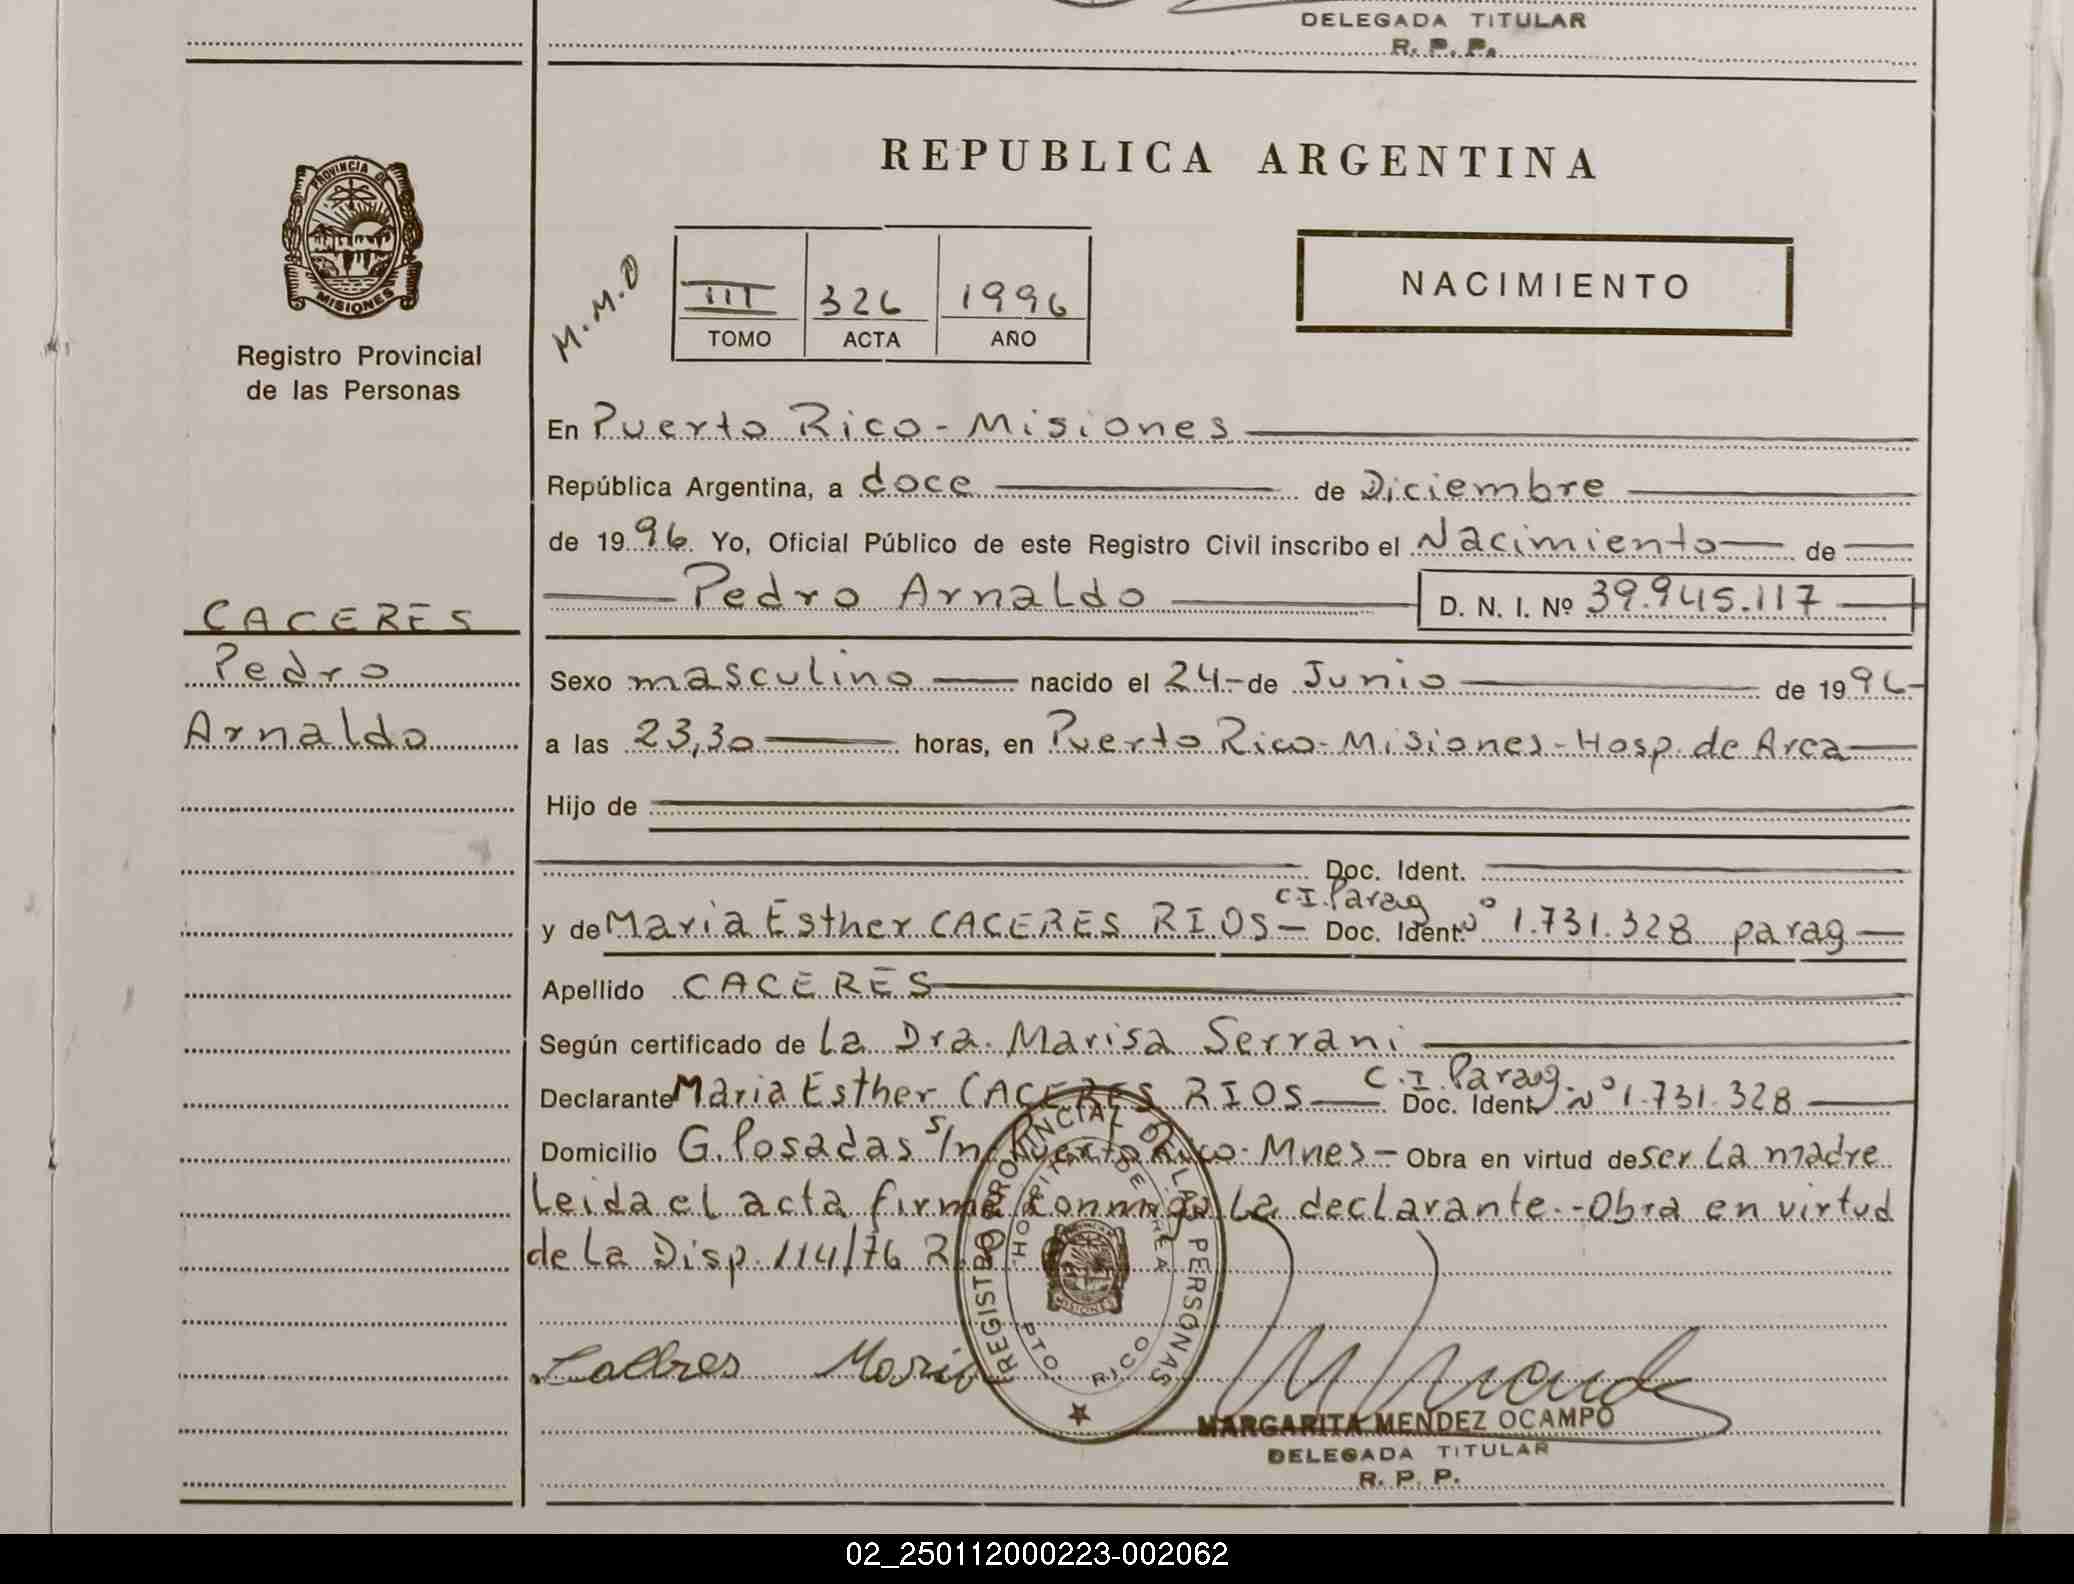 DELEGADA TITULAR
R. P. P.
PROVINCIA DE
MISIONES
Registro Provincial
de las Personas
REPUBLICA ARGENTINA
M.M.O
III 326 1996
TOMO ACTA AÑO
NACIMIENTO
En Puerto Rico - Misiones
República Argentina, a doce de Diciembre
de 1996 Yo, Oficial Público de este Registro Civil inscribo el Nacimiento de
Pedro Arnaldo D. N. I. Nº 39.945.117
CACERES
Pedro
Arnaldo
Sexo masculino nacido el 24 - de Junio de 1996
a las 23,30 horas, en Puerto Rico - Misiones - Hosp. de Area
Hijo de
Doc. Ident.
C.I. Parag
y de Maria Esther CACERES RIOS - Doc. Ident. Nº 1.731.328 parag
Apellido CACERES
Según certificado de La Dra. Marisa Serrani
C.I. Parag.
Declarante Maria Esther CACERES RIOS Doc. Ident. Nº 1.731.328
Domicilio G. Posadas s/n Puerto Rico - Mnes - Obra en virtud de ser La madre
Leida el acta firma conmigo La declarante. - Obra en virtud
de La Disp. 114/76
REGISTRO PROVINCIAL DE LAS PERSONAS
HOSPITAL DE AREA
MISIONES
PTO. RICO
Maria
MARGARITA MENDEZ OCAMPO
DELEGADA TITULAR
R. P. P.
02_250112000223-002062